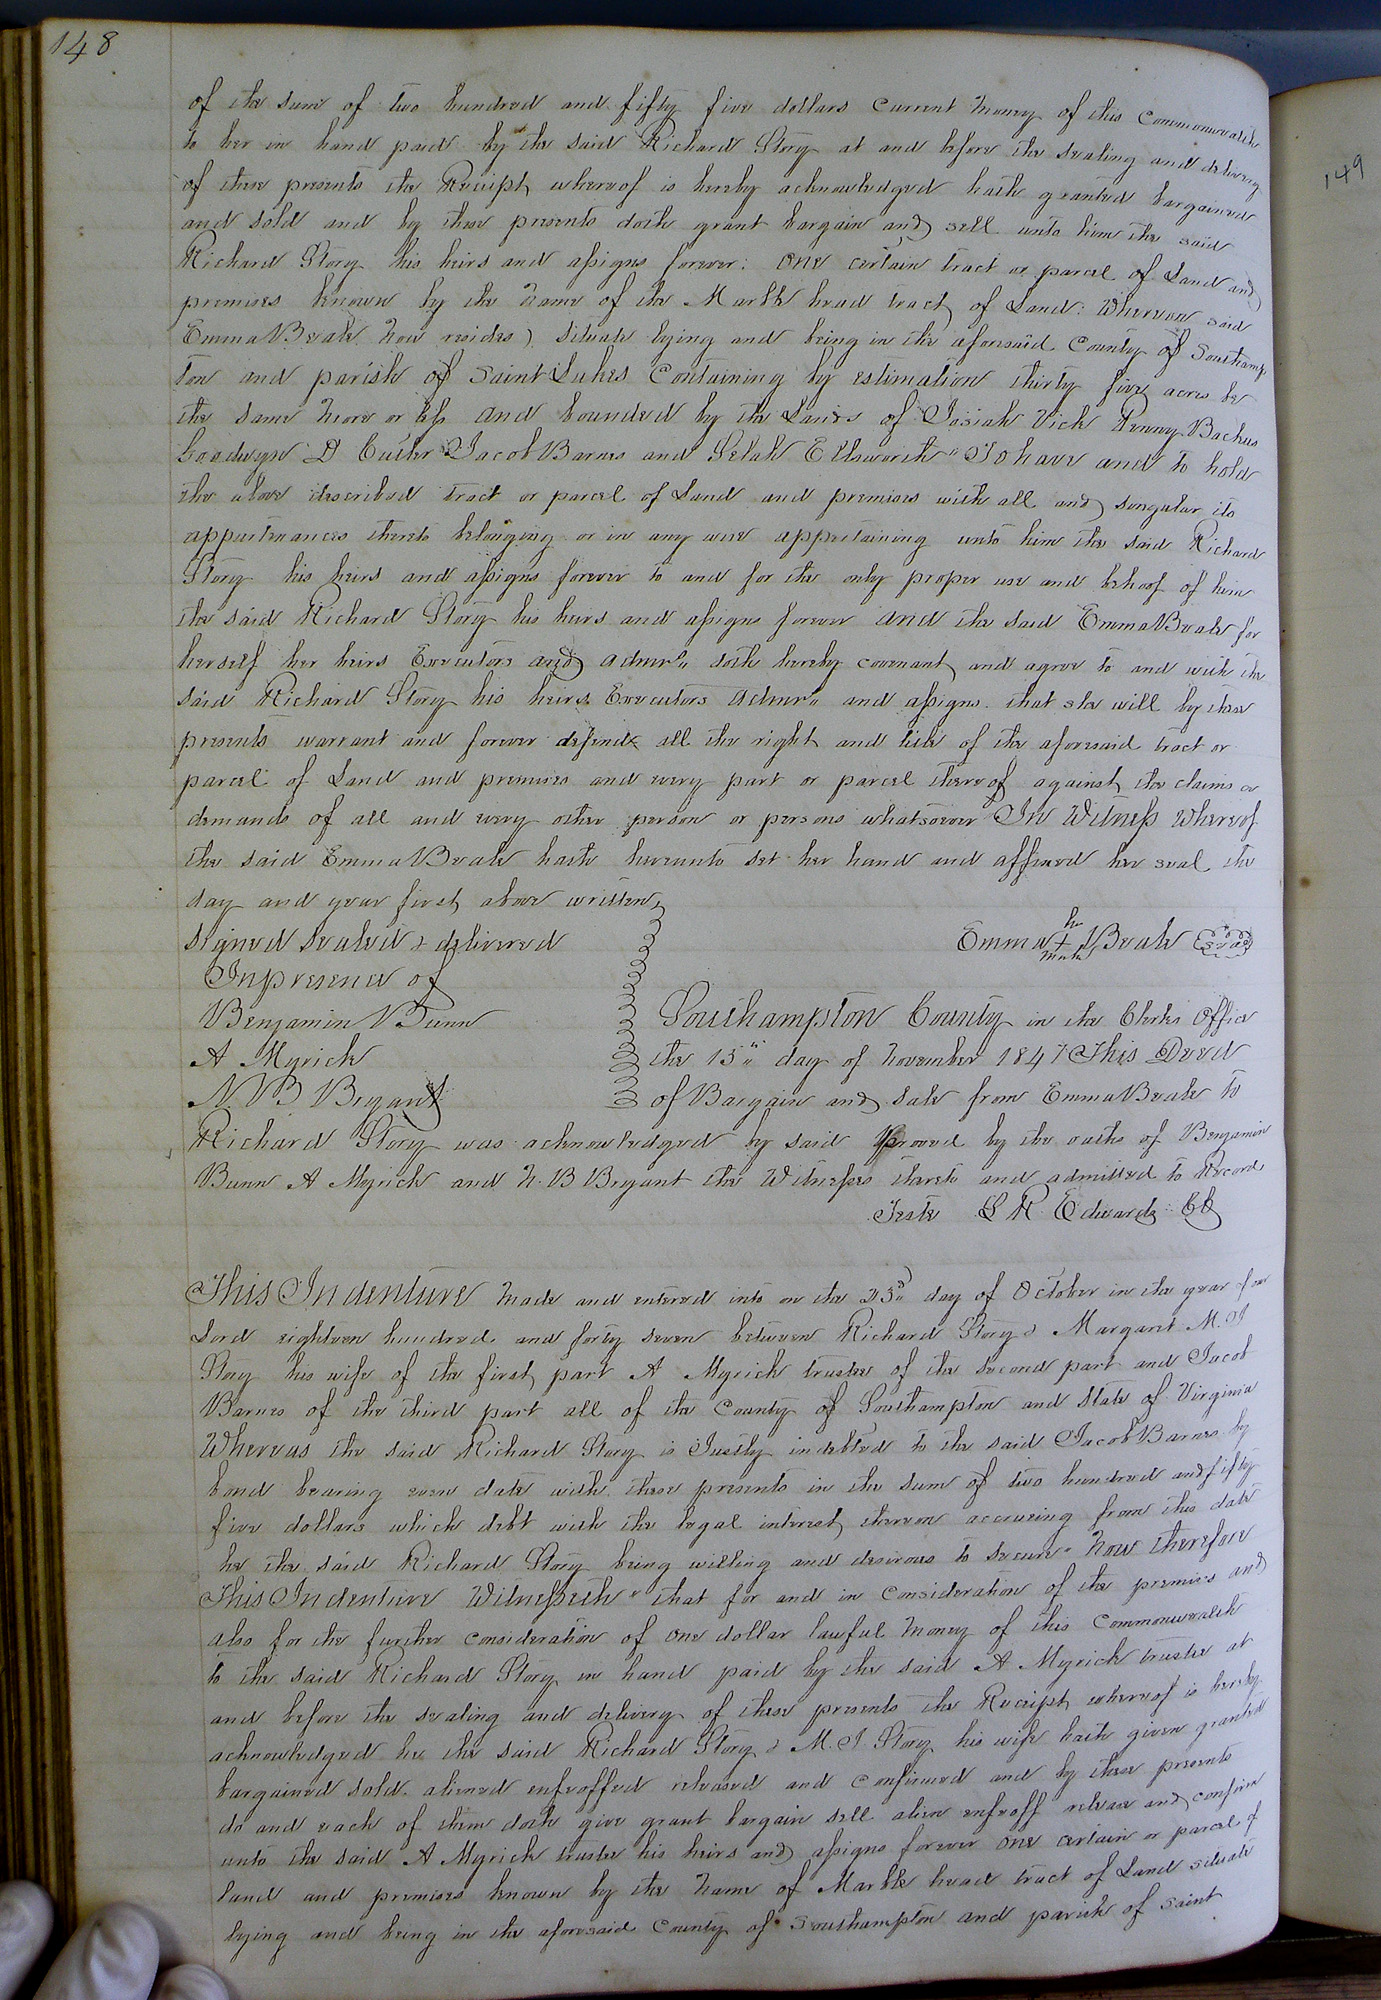 148
of the sum of two hundred and fifty five dollars Current money of this Commonwealth
to her in hand paid by the said Richard Story at and before the sealing and delivery
of these presents the Receipt whereof is hereby acknowledged hath granted bargained
and sold and by these presents doth grant bargain and sell unto him the said
Richard Story his heirs and assigns forever: One certain tract or parcel of Land and
premises known by the name of the Marble head tract of Land: Whereon said
Emma Beale now resides) situate lying and being in the aforesaid County of Southamp
ton and parish of Saint Lukes Containing by estimation thirty five acres be
the same more or less and bounded by the Lands of Josiah Vick Benny Backus
Goodwyn D Cutler Jacob Barnes and Selah Ellsworth" To have and to hold
the above described tract or parcel of Land and premises with all and singular its
appurtenances thereto belonging or in any wise appertaining unto him the said Richard
Story his heirs and assigns forever to and for the only proper use and behoof of him
the said Richard Story his heirs and assigns forever and the said Emma Beale for
herself her heirs Executors and admrs" doth hereby covenant and agree to and with the
said Richard Story his heirs Executors admrs" and assigns that she will by these
presents warrant and forever defend all the right and title of the aforesaid tract or
parcel of Land and premises and every part or parcel thereof against the claims or
demands of all and every other person or persons whatsoever In Witness Whereof
the said Emma Beale hath hereunto set her hand and affixed her seal the
day and year first above written,
Signed sealed & delivered
In presence of
Benjamin Bunn
A Myrick
N B Bryant
Emma her + mark Beale Seal
Southampton County in the Clerks Office
the 15" day of November 1847 This Deed
of Bargain and Sale from Emma Beale to
Richard Story was acknowledged by said proved by the oaths of Benjamin
Bunn A Myrick and N. B Bryant the Witnesses thereto and admitted to Record
Teste L R Edwards CC
This Indenture Made and entered into on the 23d" day of October in the year four
Lord eighteen hundred and forty seven between Richard Story & Margaret M. J
Story his wife of the first part A Myrick trustee of the second part and Jacob
Barnes of the third part all of the County of Southampton and State of Virginia
Whereas the said Richard Story is Justly indebted to the said Jacob Barnes by
bond bearing even date with these presents in the sum of two hundred and fifty
five dollars which debt with the legal interest thereon accrueing from this date
he the said Richard Story being willing and desirous to secure" Now therefore
This Indenture Witnesseth" that for and in consideration of the premises and
also for the further consideration of One dollar lawful money of this Commonwealth
to the said Richard Story in hand paid by the said A Myrick trustee at
and before the sealing and delivery of these presents the Receipt whereof is hereby
acknowledged he the said Richard Story & M. J. Story his wife hath given granted
bargained sold aliened enfeoffed released and Confirmed and by these presents
do and each of them doth give grant bargain sell alien enfeoff release and confirm
unto the said A Myrick trustee his heirs and assigns forever One certain or parcel of
land and premises known by the name of Marble head tract of Land situate
lying and being in the aforesaid County of Southampton and parish of Saint
149